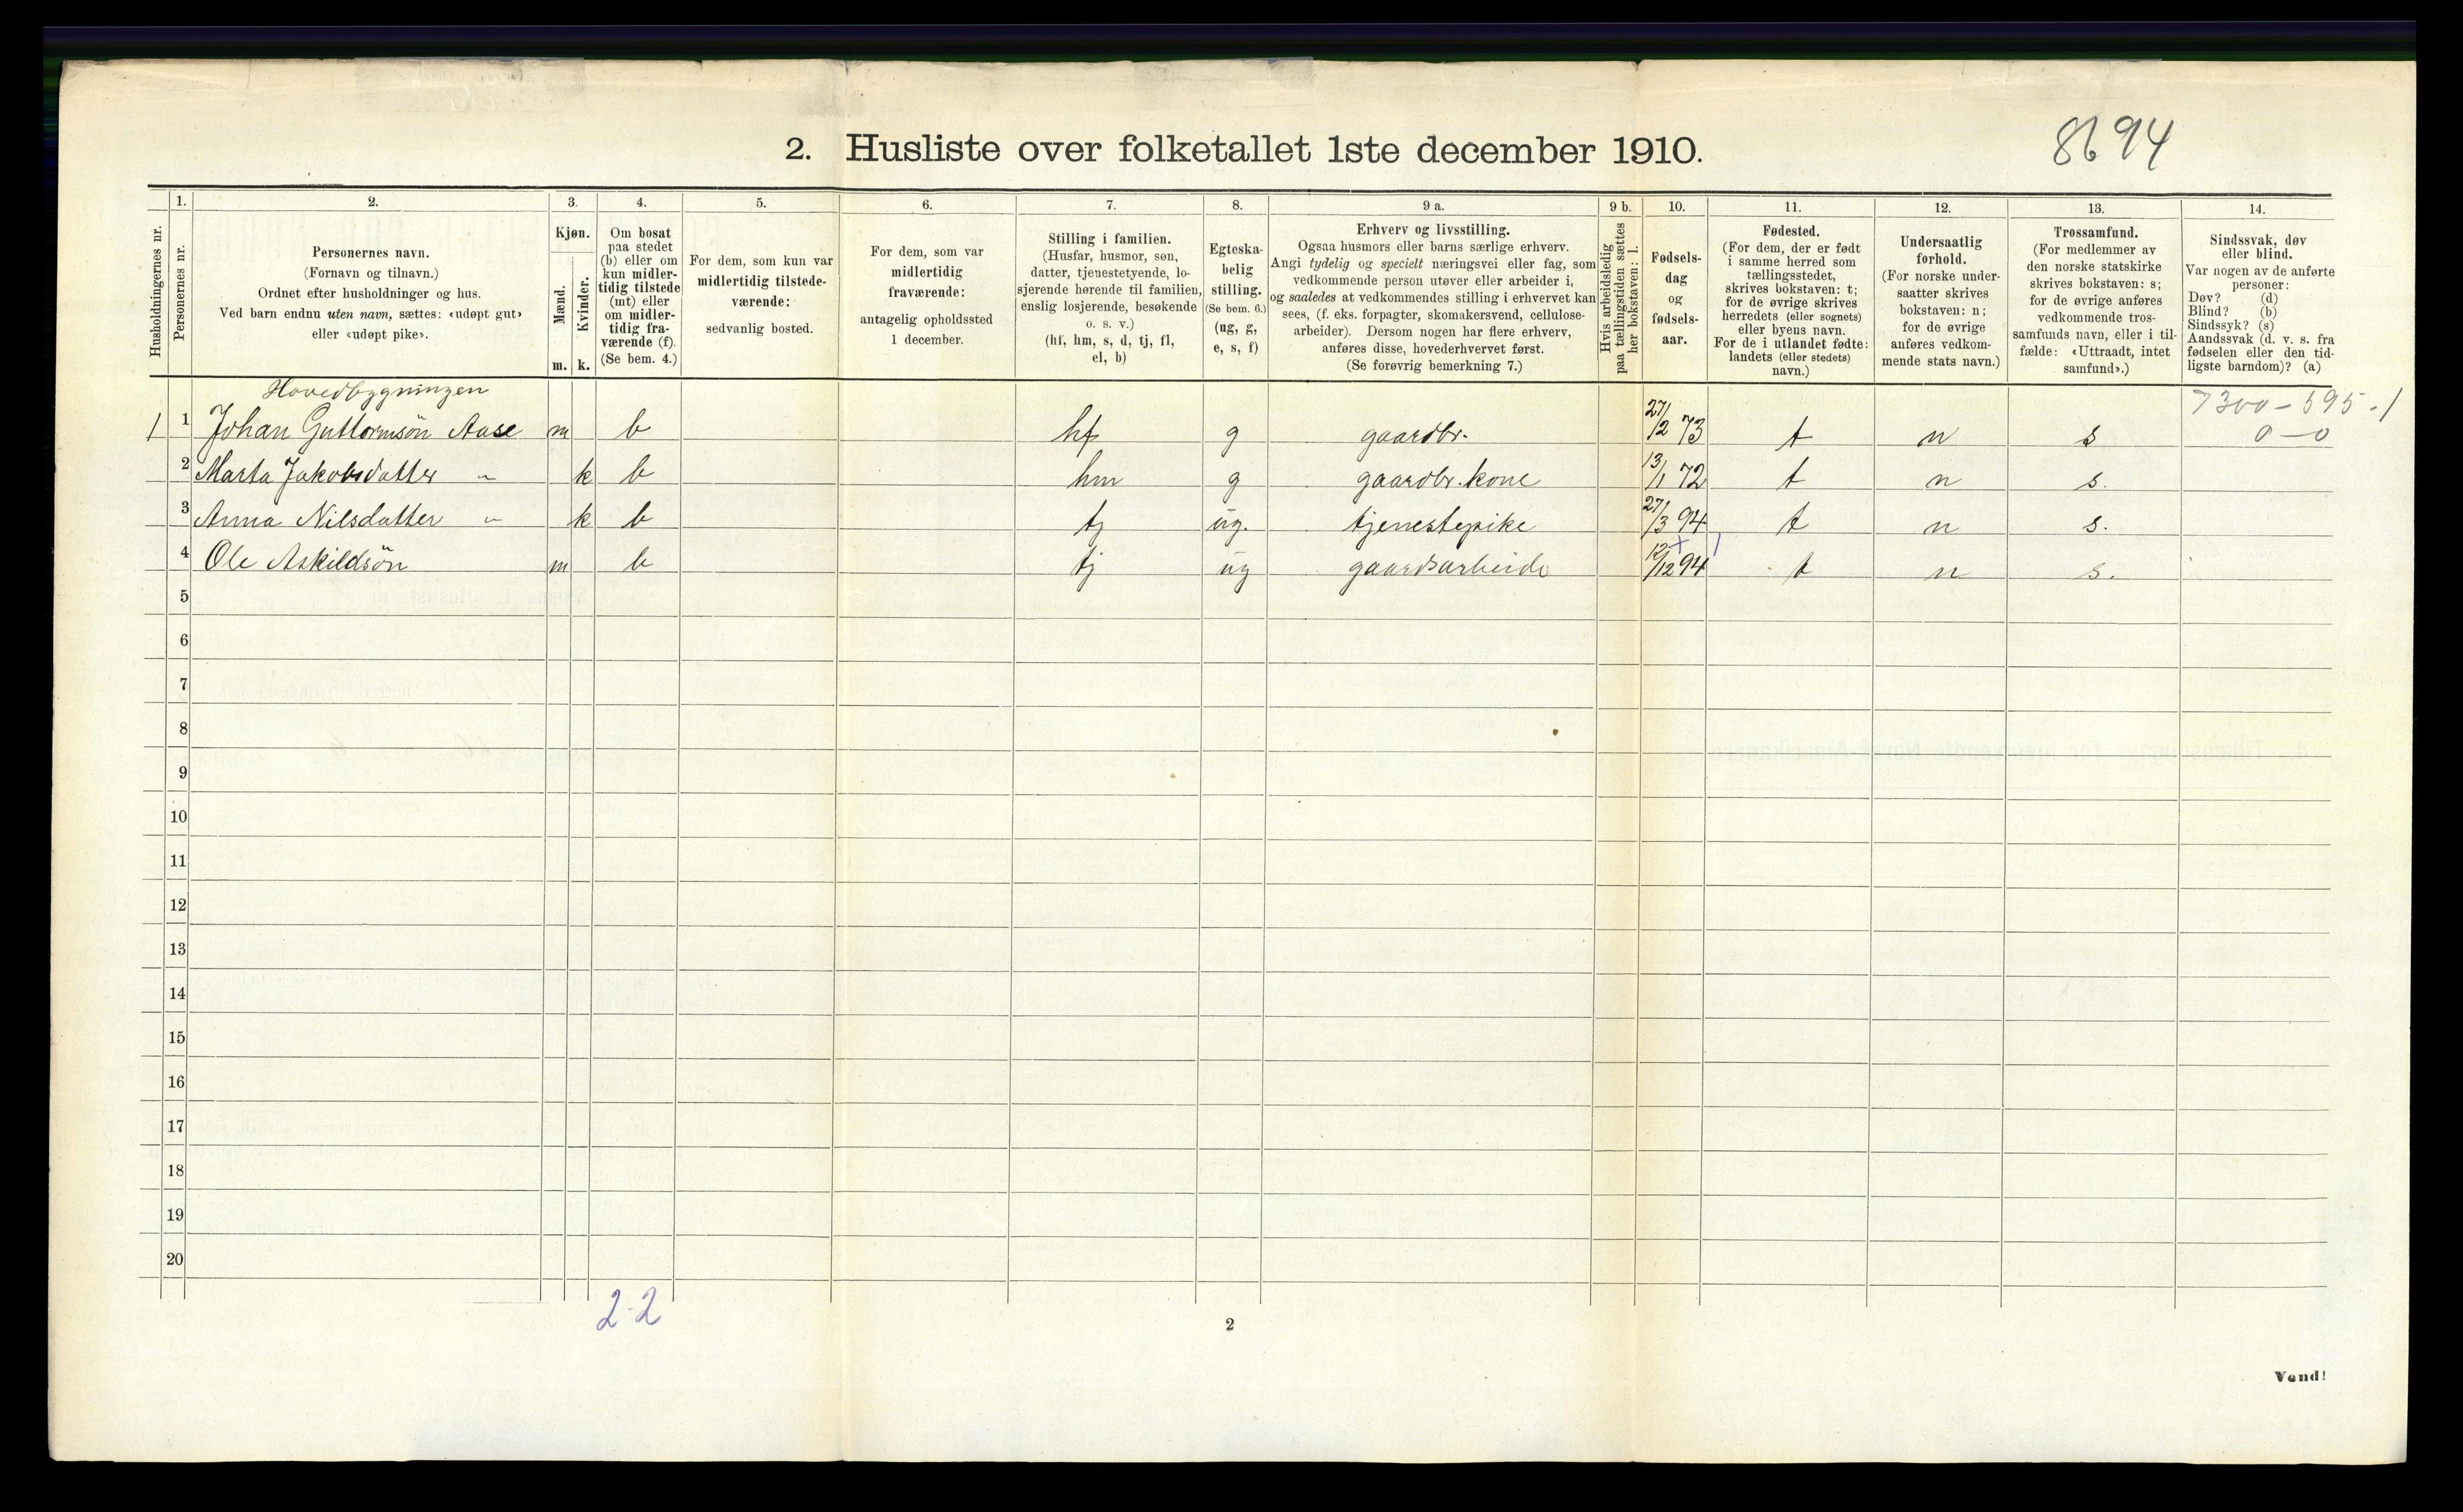 2. Husliste over folketallet 1ste december 1910.
8694
Husholdningernes nr.
1.
Personernes nr.
2.
Personernes navn.
(Fornavn og tilnavn.)
Ordnet efter husholdninger og hus.
Ved barn endnu uten navn, sættes: «udøpt gut»
eller «udøpt pike».
3.
Kjøn.
Mænd.
Kvinder.
m. k.
4.
Om bosat
paa stedet
(b) eller om
kun midler-
tidig tilstede
(mt) eller
om midler-
tidig fra-
værende (f).
(Se bem. 4.)
5.
For dem, som kun var
midlertidig tilstede-
værende:
sedvanlig bosted.
6.
For dem, som var
midlertidig
fraværende:
antagelig opholdssted
1 december.
7.
Stilling i familien.
(Husfar, husmor, søn,
datter, tjenestetyende, lo-
sjerende hørende til familien,
enslig losjerende, besøkende
o. s. v.)
(hf, hm, s, d, tj, fl,
el, b)
8.
Egteska-
belig
stilling.
(Se bem. 6.)
(ug, g,
e, s, f)
9 a.
Erhverv og livsstilling.
Ogsaa husmors eller barns særlige erhverv.
Angi tydelig og specielt næringsvei eller fag, som
vedkommende person utøver eller arbeider i,
og saaledes at vedkommendes stilling i erhvervet kan
sees, (f. eks. forpagter, skomakersvend, cellulose-
arbeider). Dersom nogen har flere erhverv,
anføres disse, hovederhvervet først.
(Se forøvrig bemerkning 7.)
9 b.
Hvis arbeidsledig
paa tællingstiden sættes
her bokstaven: l.
10.
Fødsels-
dag
og
fødsels-
aar.
11.
Fødested.
(For dem, der er født
i samme herred som
tællingsstedet,
skrives bokstaven: t;
for de øvrige skrives
herredets (eller sognets)
eller byens navn.
For de i utlandet fødte:
landets (eller stedets)
navn.)
12.
Undersaatlig
forhold.
(For norske under-
saatter skrives
bokstaven: n;
for de øvrige
anføres vedkom-
mende stats navn.)
13.
Trossamfund.
(For medlemmer av
den norske statskirke
skrives bokstaven: s;
for de øvrige anføres
vedkommende tros-
samfunds navn, eller i til-
fælde: «Uttraadt, intet
samfund».)
14.
Sindssvak, døv
eller blind.
Var nogen av de anførte
personer:
Døv? (d)
Blind? (b)
Sindssyk? (s)
Aandssvak (d. v. s. fra
fødselen eller den tid-
ligste barndom)? (a)
Hovedbygningen
7300 - 595 - 1
0 - 0
1 1 Johan Guttormsön Aase m b hf g gaardbr. 27/2 73 t n s
2 Marta Jakobsdatter " k b hm g gaardbr. kone 13/1 72 t n s.
3 Anna Nilsdatter " k b tj ug. tjenestepike 27/3 94 t n s.
4 Ole Askildsön m b tj ug gaardsarbeide 12/12 94 t n s.
5
6
7
8
9
10
11
12
13
14
15
16
17
18
19
20
2-2
2
Vend!